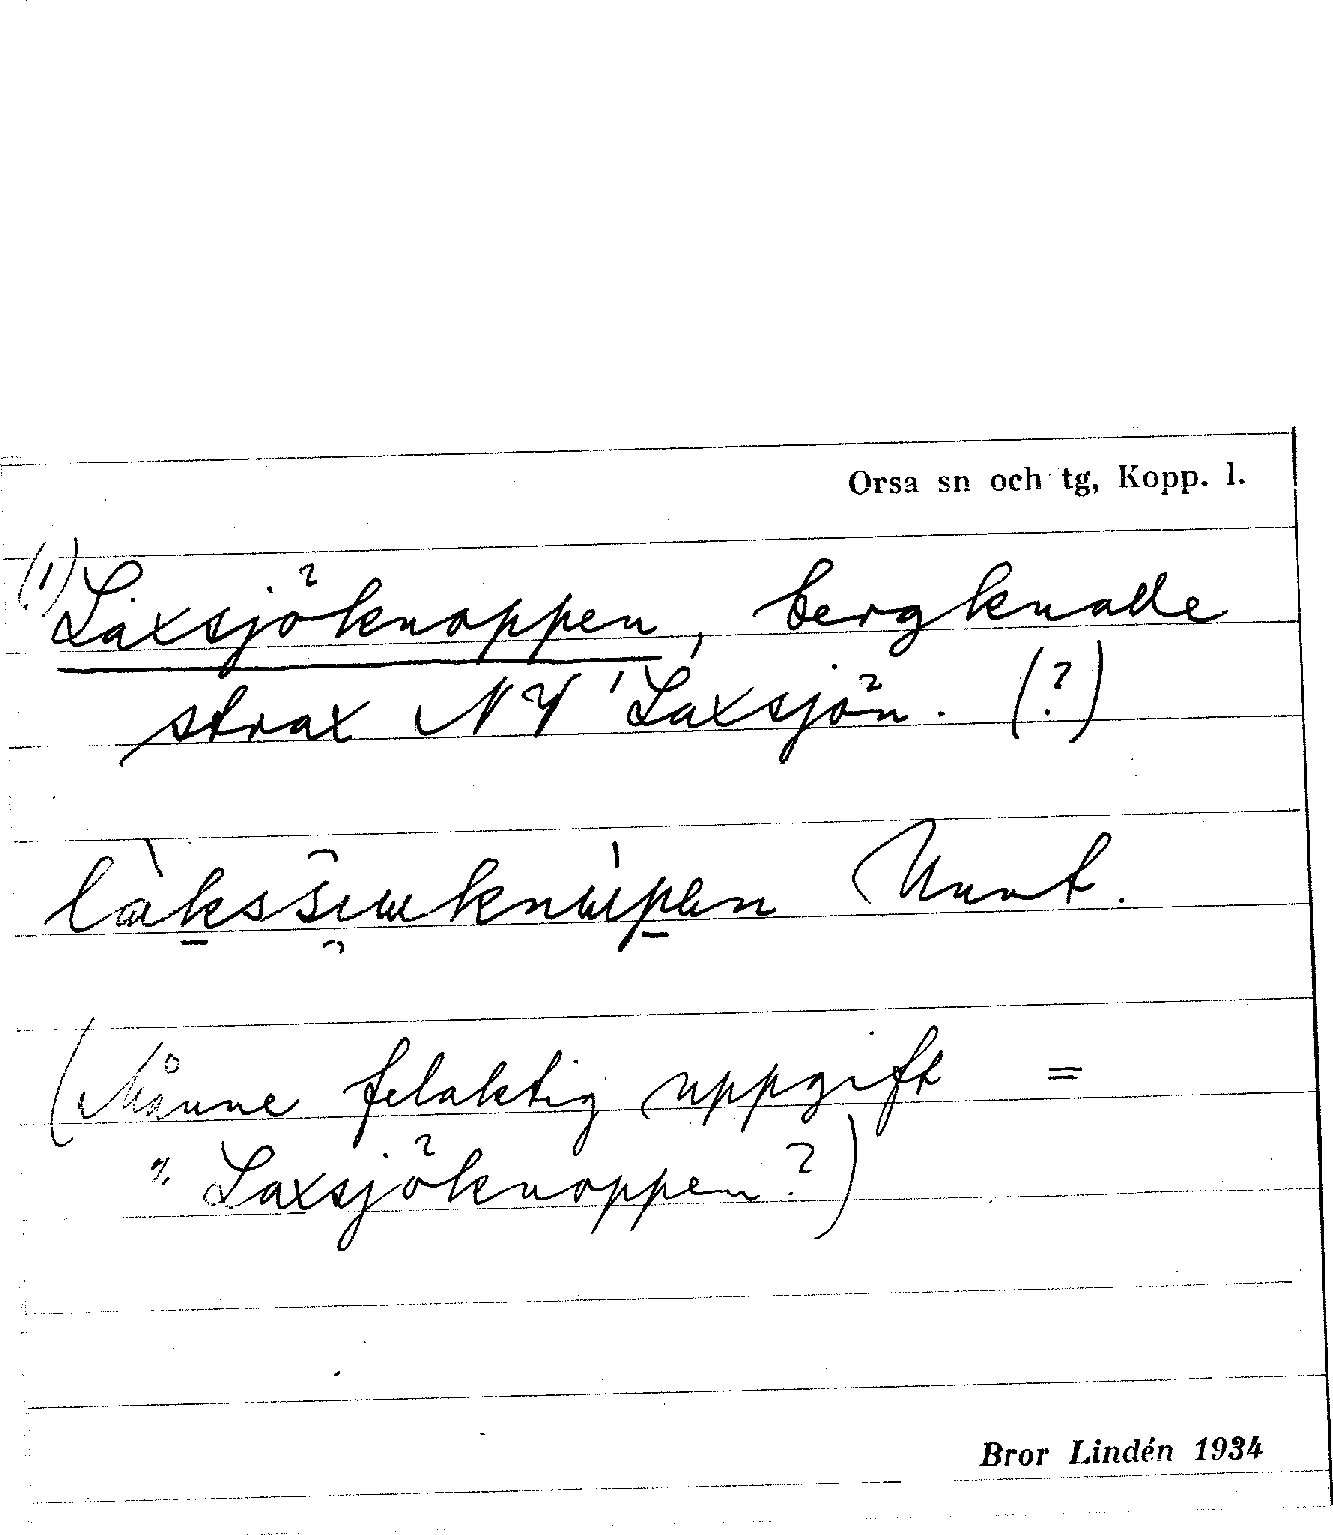 Orsa sn och tg, Kopp. l.
(1) Laxsjöknoppen, bergknalle
strax NV 'Laxsjön. (?)
(Månne felaktig uppgift =
" Laxsjöknoppen?)
Bror Lindén 1934